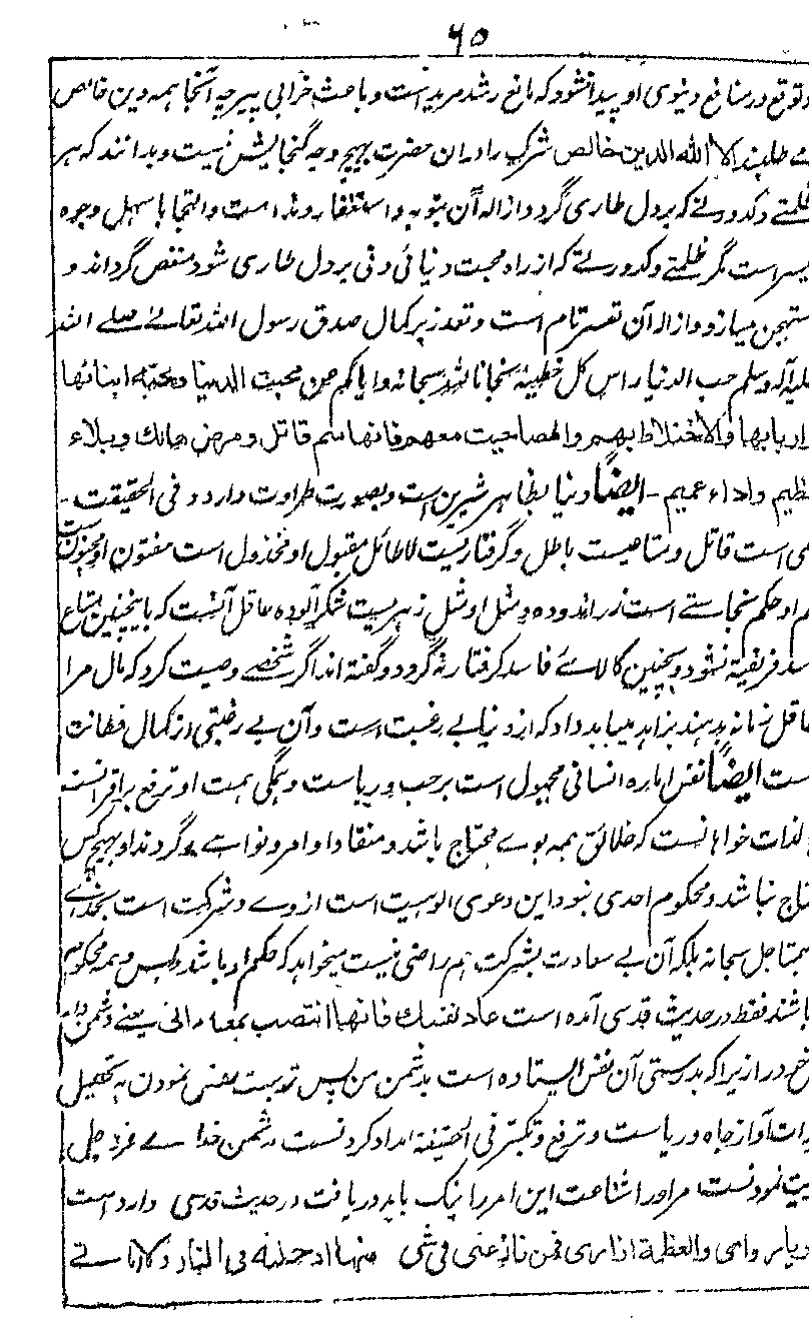 ۶۵
وتوقع در منافع دنیوی او پیدا نشود که مانع رشد مرید است و باعث خرابی پیر چه آنجا همه دین خالص
مے طلبند الا لله الدین الخالص شرک را دران حضرت بهیچ وجه گنجایش نیست و بدانند که هر
ظلمتے و کدورتے که بر دل طاری گردد ازاله آن بتوبه و استغفار و ندامت و التجا باسهل وجوه
میسر است مگر ظلمتے و کدورتے که از راه محبت دنیائی دنی بر دل طاری شود منغص گرداند و
مستهجن میسازد و ازاله آن تعسر تام است و تعذر بر کمال صدق رسول الله تعالے صلے الله
علیه آله وسلم حب الدنیا راس کل خطیئة نجانا الله سبحانه وایاکم من محبت الدنیا و محبة ابنائها
و اربابها والاختلاط بهم والمصاحبت معهم فانها سم قاتل و مرض هالک وبلاء
عظیم وداء عمیم - ایضاً دنیا بظاهر شیرین است و بصورت طراوت دارد و فی الحقیقت -
سمی است قاتل و متاعیست باطل و گرفتاریست لاطائل مقبول او مخذول است مفتون او مجنون است
حکم او حکم نجاستے است زراندوده و مثل او مثل زهریست شکر آلوده عاقل آنست که باینچنین متاع
کاسد فریفته نشود و بچنین کالائے فاسد گرفتار نه گردد و گفته اند اگر شخصے وصیت کرد که مال مرا
بعاقل زمانه بدهند بزاهد میباید داد که از دنیا بے رغبت است و آن بے رغبتی از کمال فطانت
است ایضاً نفس اماره انسانی مجبول است بر حب و ریاست و همگی همت او ترفع بر اقرانست
و بالذات خواهانست که خلائق همه بوے محتاج باشد و منقاد اوامر و نواهے او گردند او بهیچ کس
محتاج نباشد و محکوم احدی نبود این دعوی الوهیت است ازوے و شرکت است بخدائے
بیهمتا جل سبحانه بلکه آن بے سعادت بشرکت هم راضی نیست میخواهد که حکم او باشد و بس و همه محکوم
باشند فقط در حدیث قدسی آمده است عاد نفسک فانها انتصب بمعاداتی یعنے دشمن دار
در از زیرا که بدرستی آن نفس ایستاده است بدشمن من پس تربیت نفس نمودن به تحصیل
مرادات آواز جاه و ریاست و ترفع و تکبر فی الحقیقة امداد کردنست دشمن خدا ے عز و جل
نمودنست مر اورا شناعت این امر را نیک باید دریافت در حدیث قدسی وارد است
ردائی والعظمة ازاری فمن نازعنی فی شی منهما ادخلته فی النار و لا ابالے